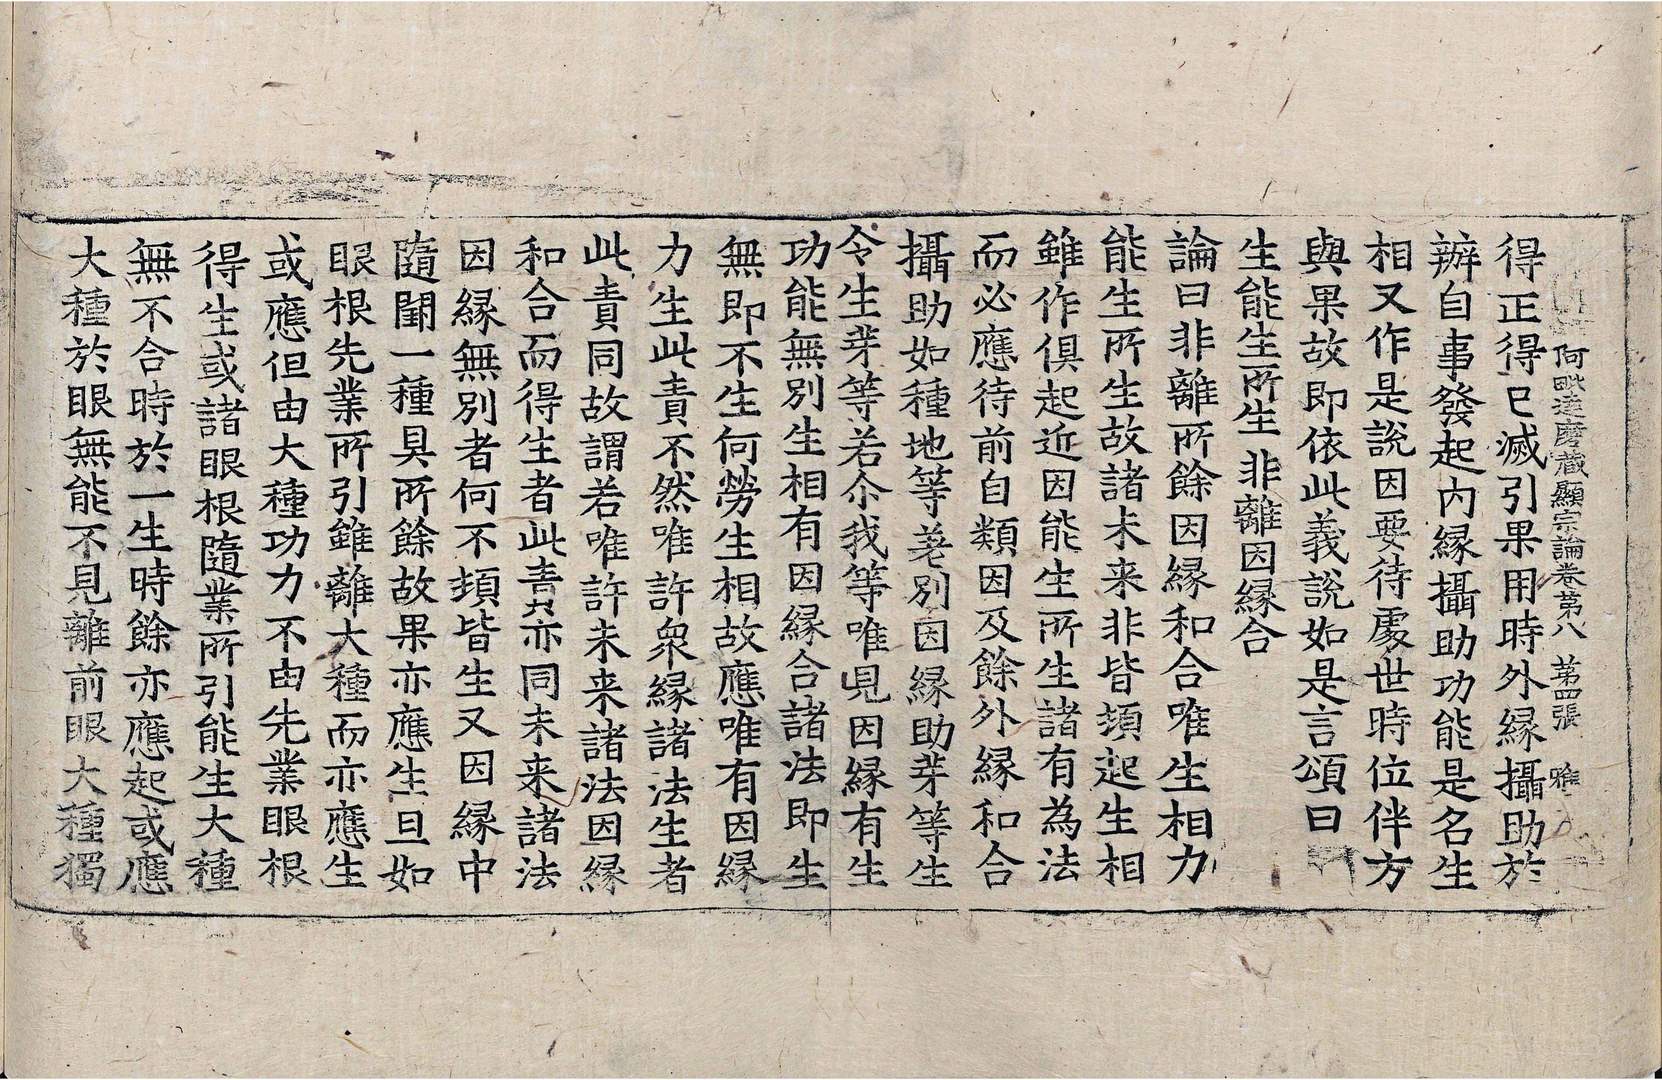 阿毗達磨藏顯宗論卷第八 第四張 雅
得正得已滅引果用時外縁攝助於
辦自事發起內縁攝助功能是名生
相又作是說因要待處世時位伴方
與果故即依此義說如是言頌曰
生能生所生 非離因縁合
論曰非離所餘因縁和合唯生相力
能生所生故諸未来非皆頓起生相
雖作俱起近因能生所生諸有為法
而必應待前自類因及餘外縁和合
攝助如種地等差別因縁助芽等生
令生芽等若尒我等唯見因縁有生
功能無別生相有因縁合諸法即生
無即不生何勞生相故應唯有因縁
力生此責不然唯許衆縁諸法生者
此責同故謂若唯許未来諸法因縁
和合而得生者此責亦同未来諸法
因縁無別者何不頓皆生又因縁中
隨闕一種具所餘故果亦應生且如
眼根先業所引雖離大種而亦應生
或應但由大種功力不由先業眼根
得生或諸眼根隨業所引能生大種
無不合時於一生時餘亦應起或應
大種於眼無能不見離前眼大種獨